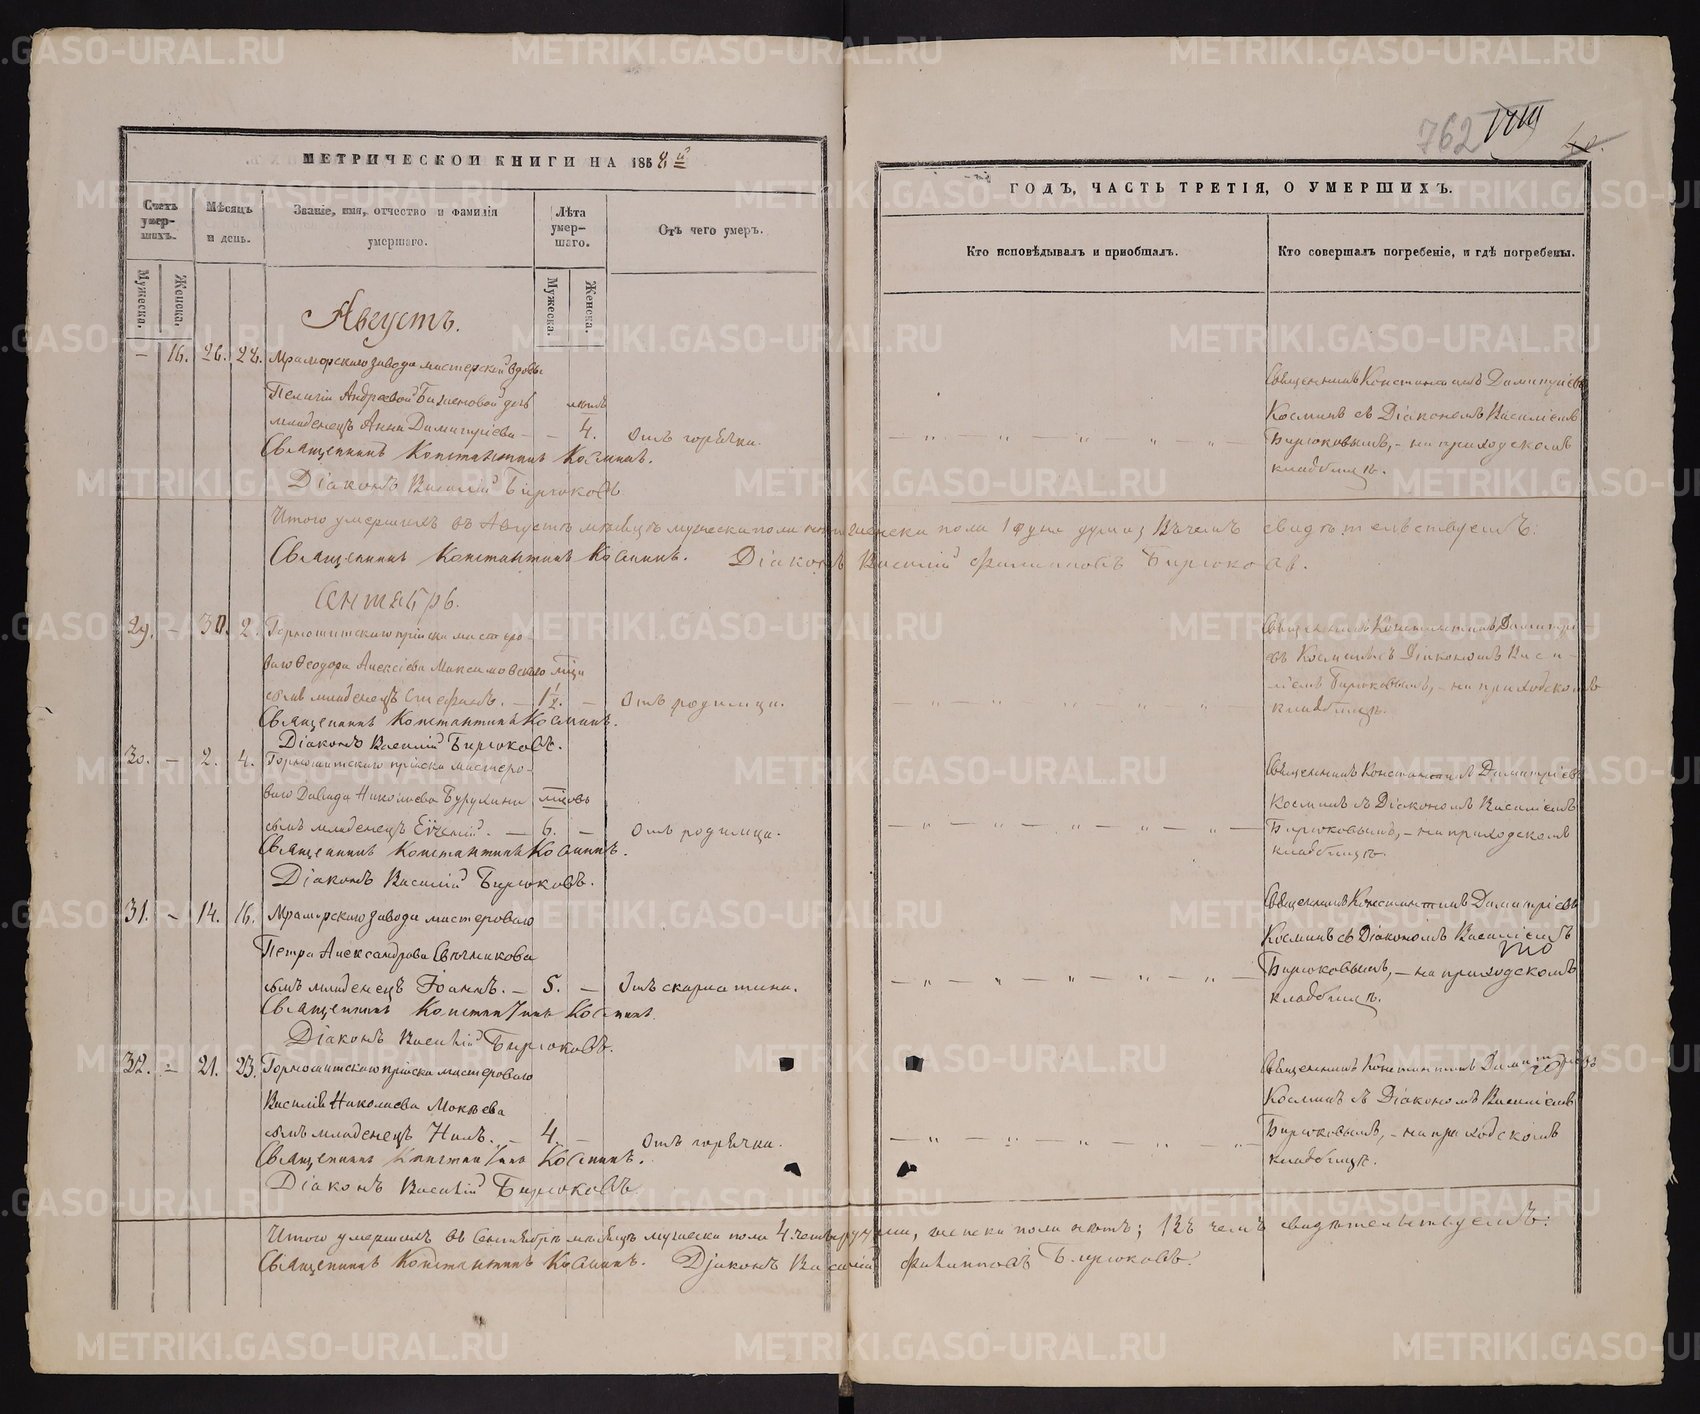 762
МЕТРИЧЕСКОЙ КНИГИ НА 1868 й
ГОДЪ, ЧАСТЬ ТРЕТІЯ, О УМЕРШИХЪ.
Счетъ умер-шихъ.
Мѣсяцъ и день.
Званіе, имя, отчество и фамилія умершаго.
Лѣта умер-шаго.
Отъ чего умеръ.
Кто исповѣдывалъ и пріобщалъ.
Кто совершалъ погребеніе, и гдѣ погребены.
Мужеска.
Женска.
Мужеска.
Женска.
Августъ.
— 16. 26. 28. Мраморскаго завода мастерской вдовы
Пелагіи Андреевой дочь
младенецъ Анна Димитріева — — 4. Отъ горячки.
Священникъ Константинъ Косминъ.
Діаконъ Василій Бирюковъ
Священникъ Константинъ Димитріевъ
Косминъ съ Діакономъ Василіемъ
Бирюковымъ, – на приходскомъ
кладбищѣ.
Итого умершихъ въ Августѣ мѣсяцѣ мужеска пола нѣтъ женска пола 1 одна душа; Въ чемъ свидѣтельствуемъ:
Священникъ Константинъ Косминъ. Діаконъ Василій Филипповъ Бирюковъ.
Сентябрь.
29. — 30. 2. Горнощитскаго пріиска мастеро-
ваго Ѳеодора Алексіева Максимовскаго
сынъ младенецъ Стефанъ. — 1½. — Отъ родимца.
Священникъ Константинъ Косминъ.
Діаконъ Василій Бирюковъ.
Священникъ Константинъ Димитрі-
евъ Косминъ съ Діакономъ Васи-
ліемъ Бирюковымъ, – на приходскомъ
кладбищѣ.
30. — 2. 4. Горнощитскаго пріиска мастеро-
ваго Давида Николаева
сынъ младенецъ Евгеній. — 6. — Отъ родимца.
Священникъ Константинъ Косминъ.
Діаконъ Василій Бирюковъ.
Священникъ Константинъ Димитріевъ
Косминъ съ Діакономъ Василіемъ
Бирюковымъ, – на приходскомъ
кладбищѣ.
31. — 14. 16. Мраморскаго завода мастероваго
Петра Александрова Свѣчникова
сынъ младенецъ Іоаннъ. — 5. — Отъ скарлатины.
Священникъ Константинъ Косминъ.
Діаконъ Василій Бирюковъ.
Священникъ Константинъ Димитріевъ
Косминъ съ Діакономъ Василіемъ
Бирюковымъ, – на приходскомъ
кладбищѣ.
32. — 21. 23. Горнощитскаго пріиска мастероваго
Василія Николаева Мокѣева
сынъ младенецъ Нилъ. — 4. — Отъ горячки.
Священникъ Константинъ Косминъ.
Діаконъ Василій Бирюковъ.
Священникъ Константинъ Димитріевъ
Косминъ съ Діакономъ Василіемъ
Бирюковымъ, – на приходскомъ
кладбищѣ.
Итого умершихъ въ Сентябрѣ мѣсяцѣ мужеска пола 4. четыре души, женска пола нѣтъ; Въ чемъ свидѣтельствуемъ:
Священникъ Константинъ Косминъ. Діаконъ Василій Филипповъ Бирюковъ.
METRIKI.GASO-URAL.RU